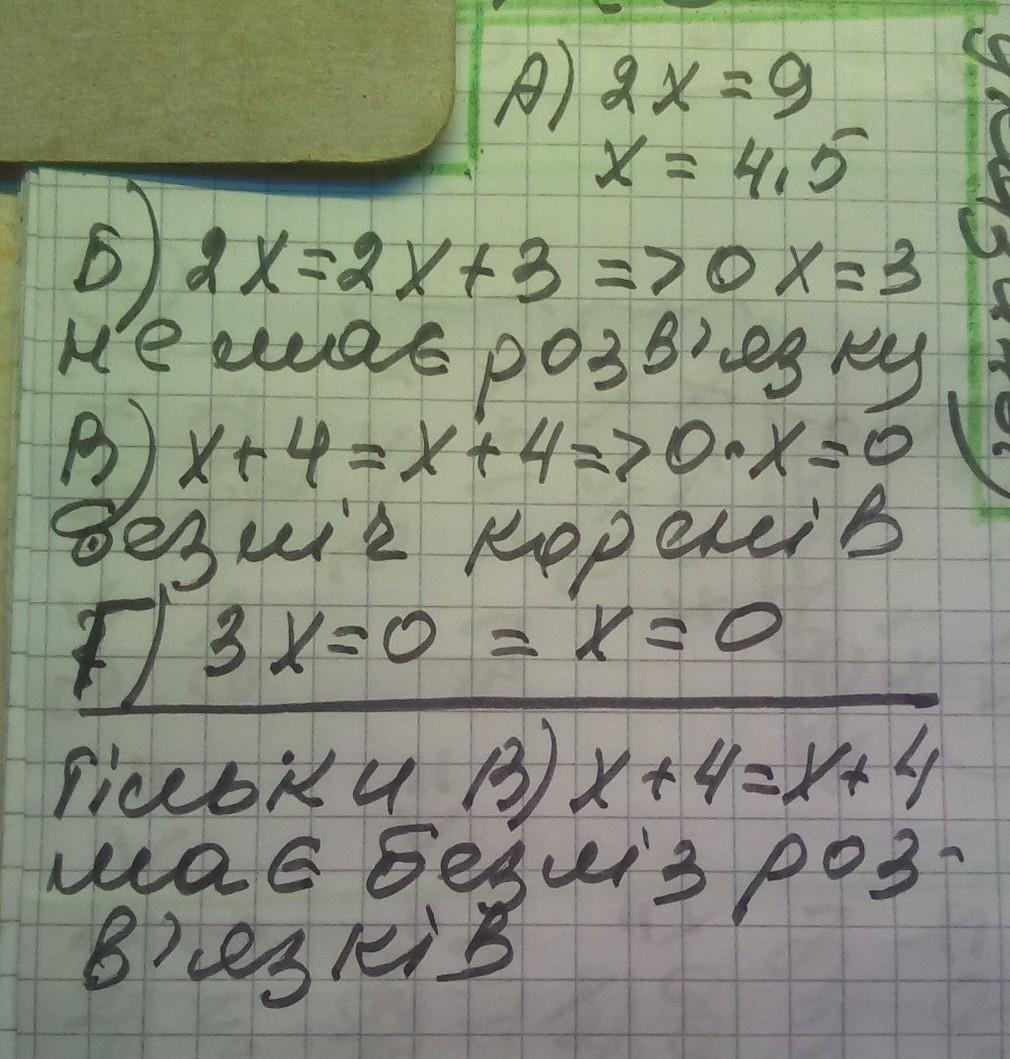 А) 2x = 9
x = 4,5
Б) 2x = 2x + 3 => 0x = 3
не має розв'язку
В) x + 4 = x + 4 => 0·x = 0
безліч коренів
Г) 3x = 0 = x = 0
Тільки В) x + 4 = x + 4
має безліз роз-
в'язків